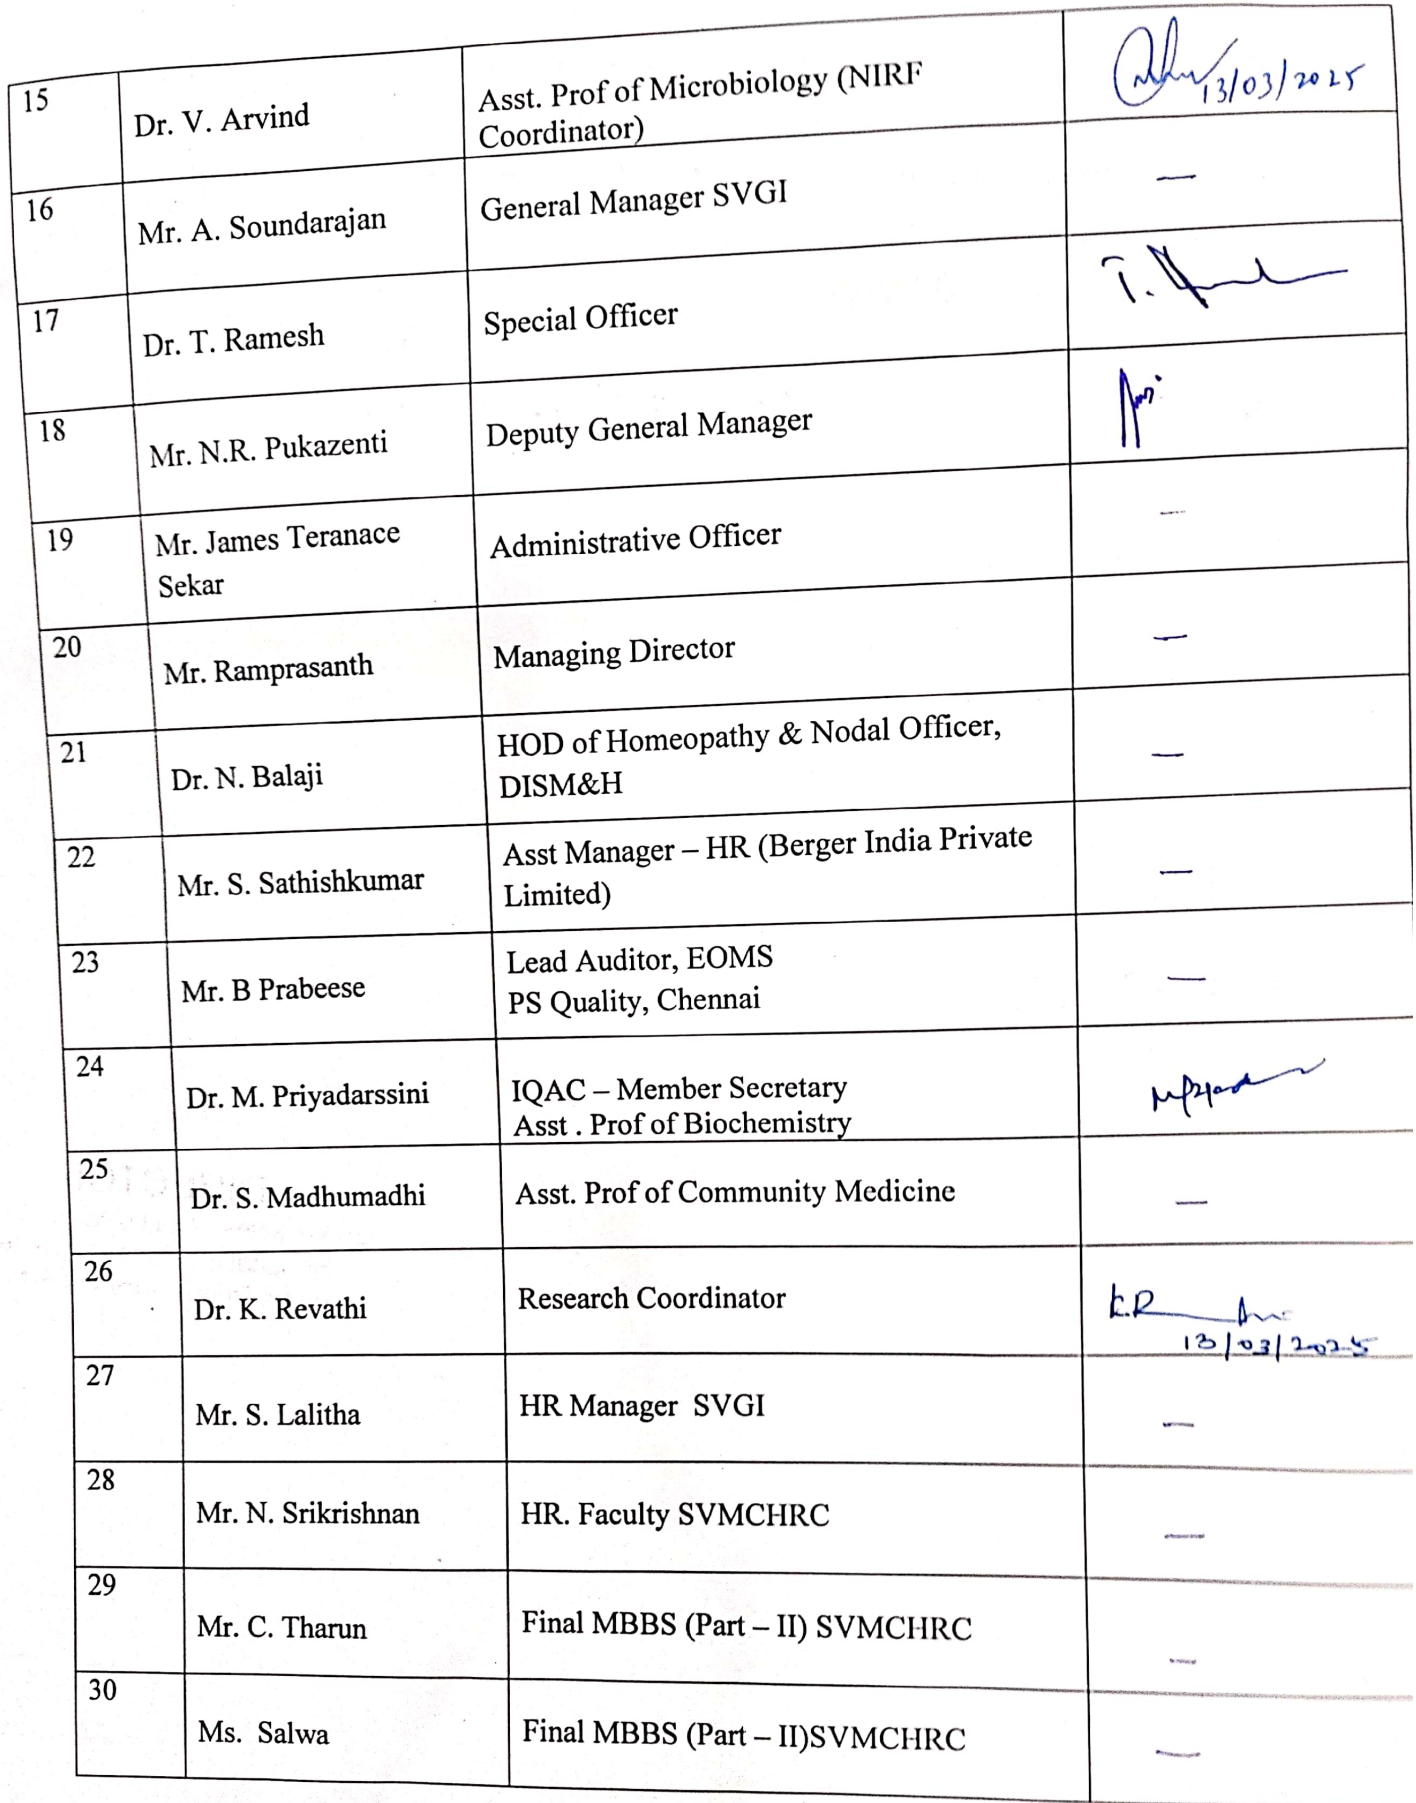 15
Dr. V. Arvind
Asst. Prof of Microbiology (NIRF
Coordinator)
13/03/2025
16
Mr. A. Soundarajan
General Manager SVGI
—
17
Dr. T. Ramesh
Special Officer
T.
18
Mr. N.R. Pukazenti
Deputy General Manager
19
Mr. James Teranace
Sekar
Administrative Officer
—
20
Mr. Ramprasanth
Managing Director
—
21
Dr. N. Balaji
HOD of Homeopathy & Nodal Officer,
DISM&H
—
22
Mr. S. Sathishkumar
Asst Manager – HR (Berger India Private
Limited)
—
23
Mr. B Prabeese
Lead Auditor, EOMS
PS Quality, Chennai
—
24
Dr. M. Priyadarssini
IQAC – Member Secretary
Asst . Prof of Biochemistry
25
Dr. S. Madhumadhi
Asst. Prof of Community Medicine
—
26
Dr. K. Revathi
Research Coordinator
K.R
13/03/2025
27
Mr. S. Lalitha
HR Manager SVGI
—
28
Mr. N. Srikrishnan
HR. Faculty SVMCHRC
—
29
Mr. C. Tharun
Final MBBS (Part – II) SVMCHRC
—
30
Ms. Salwa
Final MBBS (Part – II)SVMCHRC
—